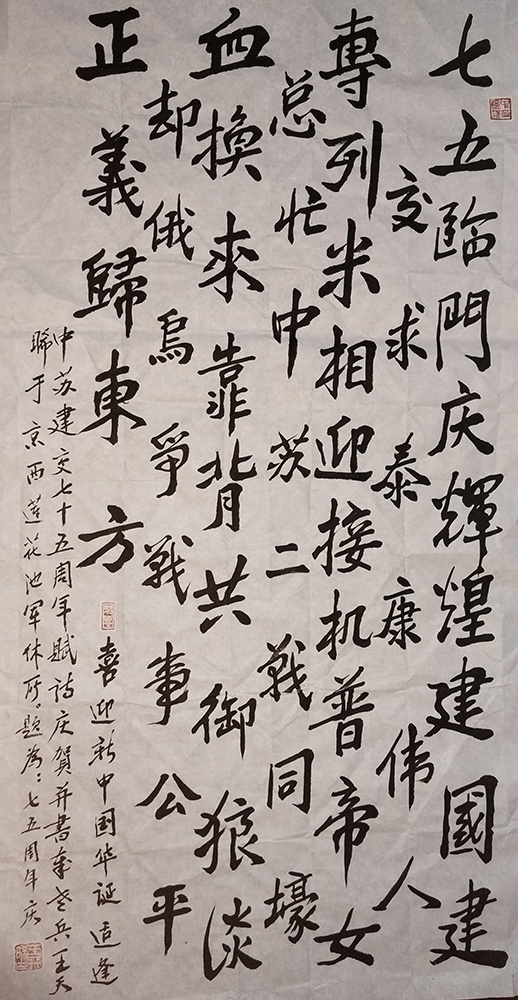 七五臨門庆輝煌建國建
交求泰康伟人
專列米相迎接机普帝女
总忙中苏二戰同壕
血換來靠背共御狼淡
却俄烏爭戰事公平
正義歸東方
喜迎新中国华诞适逢
中苏建交七十五周年赋诗庆贺并書老兵王天
于京西莲花池军休所。题為:七五周年庆